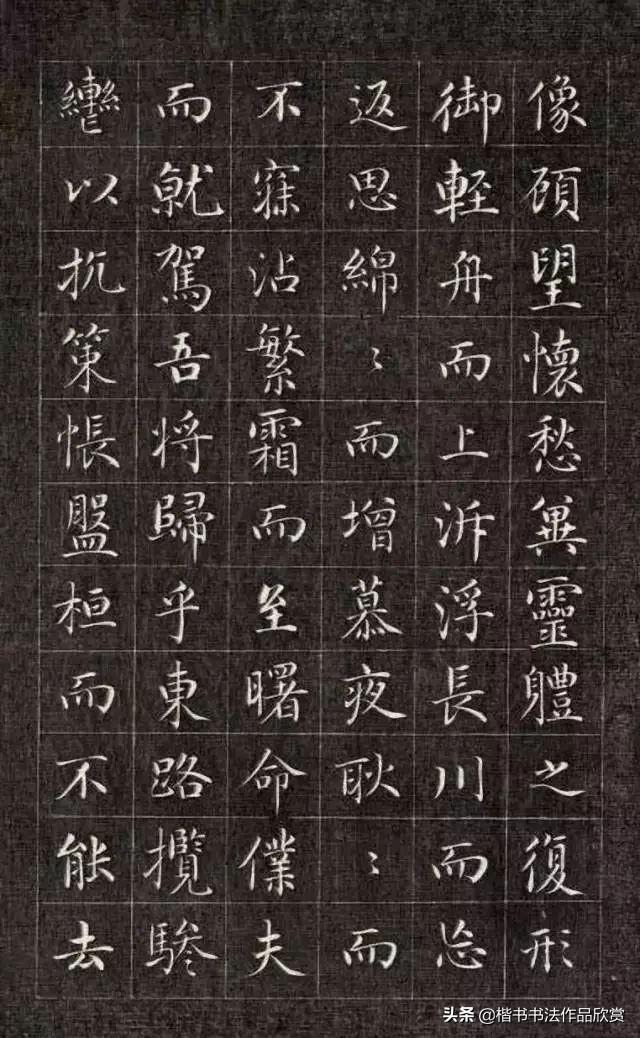 像顧望懷愁兾靈體之復形
御輕舟而上泝浮長川而忘
返思綿〻而增慕夜耿〻而
不寐沾繁霜而至曙命僕夫
而就駕吾将歸乎東路攬騑
轡以抗策悵盤桓而不能去
头条 @楷书书法作品欣赏